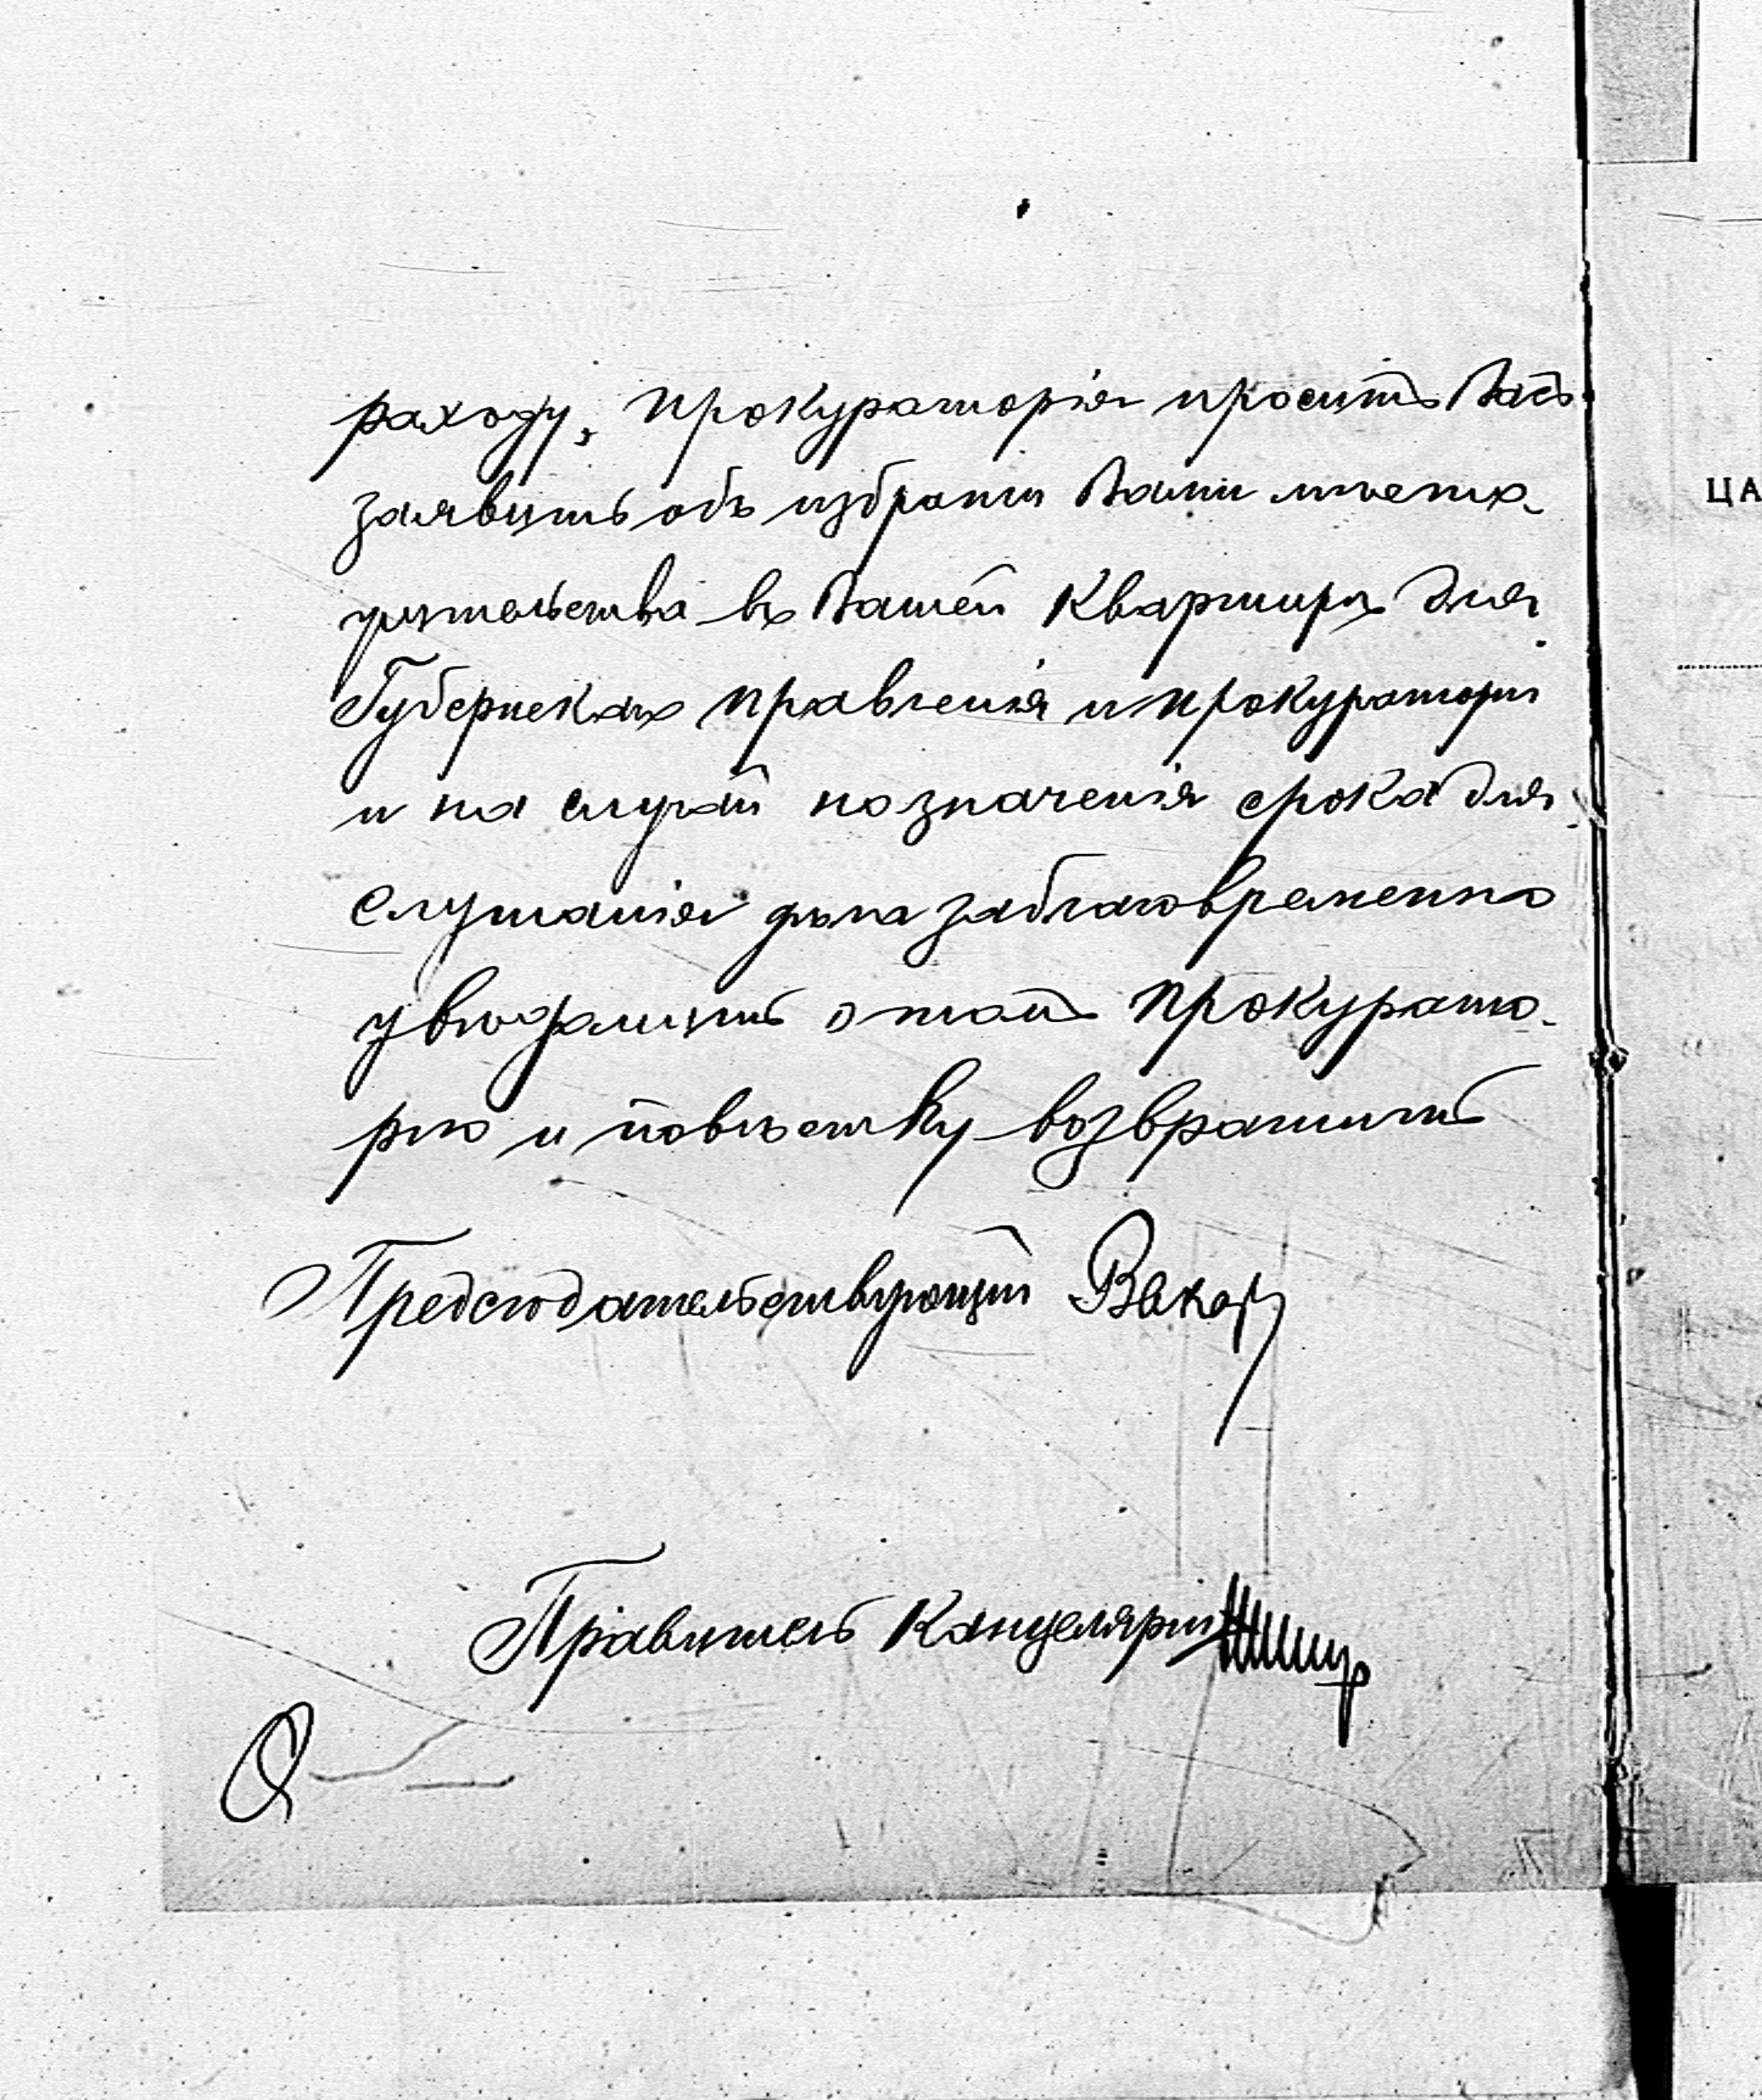 расходу, Прокураторія проситъ Васъ
заявить объ избраніи Вами мѣстожи-
тельства въ Вашей Квартирѣ для
Губернскаго Правленія и Прокураторіи
и на случай назначенія срока для
слушанія дѣла заблаговременно
увѣдомить о томъ Прокурато-
рію и повѣстку возвратить
Предсѣдательствующій Вакар
Правитель Канцеляріи
ЦА